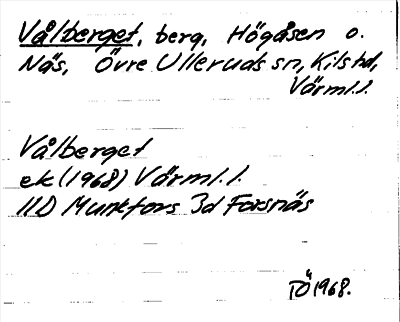 Vålberget, berg, Högåsen o.
Näs, Övre Ulleruds sn, Kils hd,
Värml.l.
Vålberget
ek (1968) Värml.l.
11D Munkfors 3d Forsnäs
TÖ 1968.